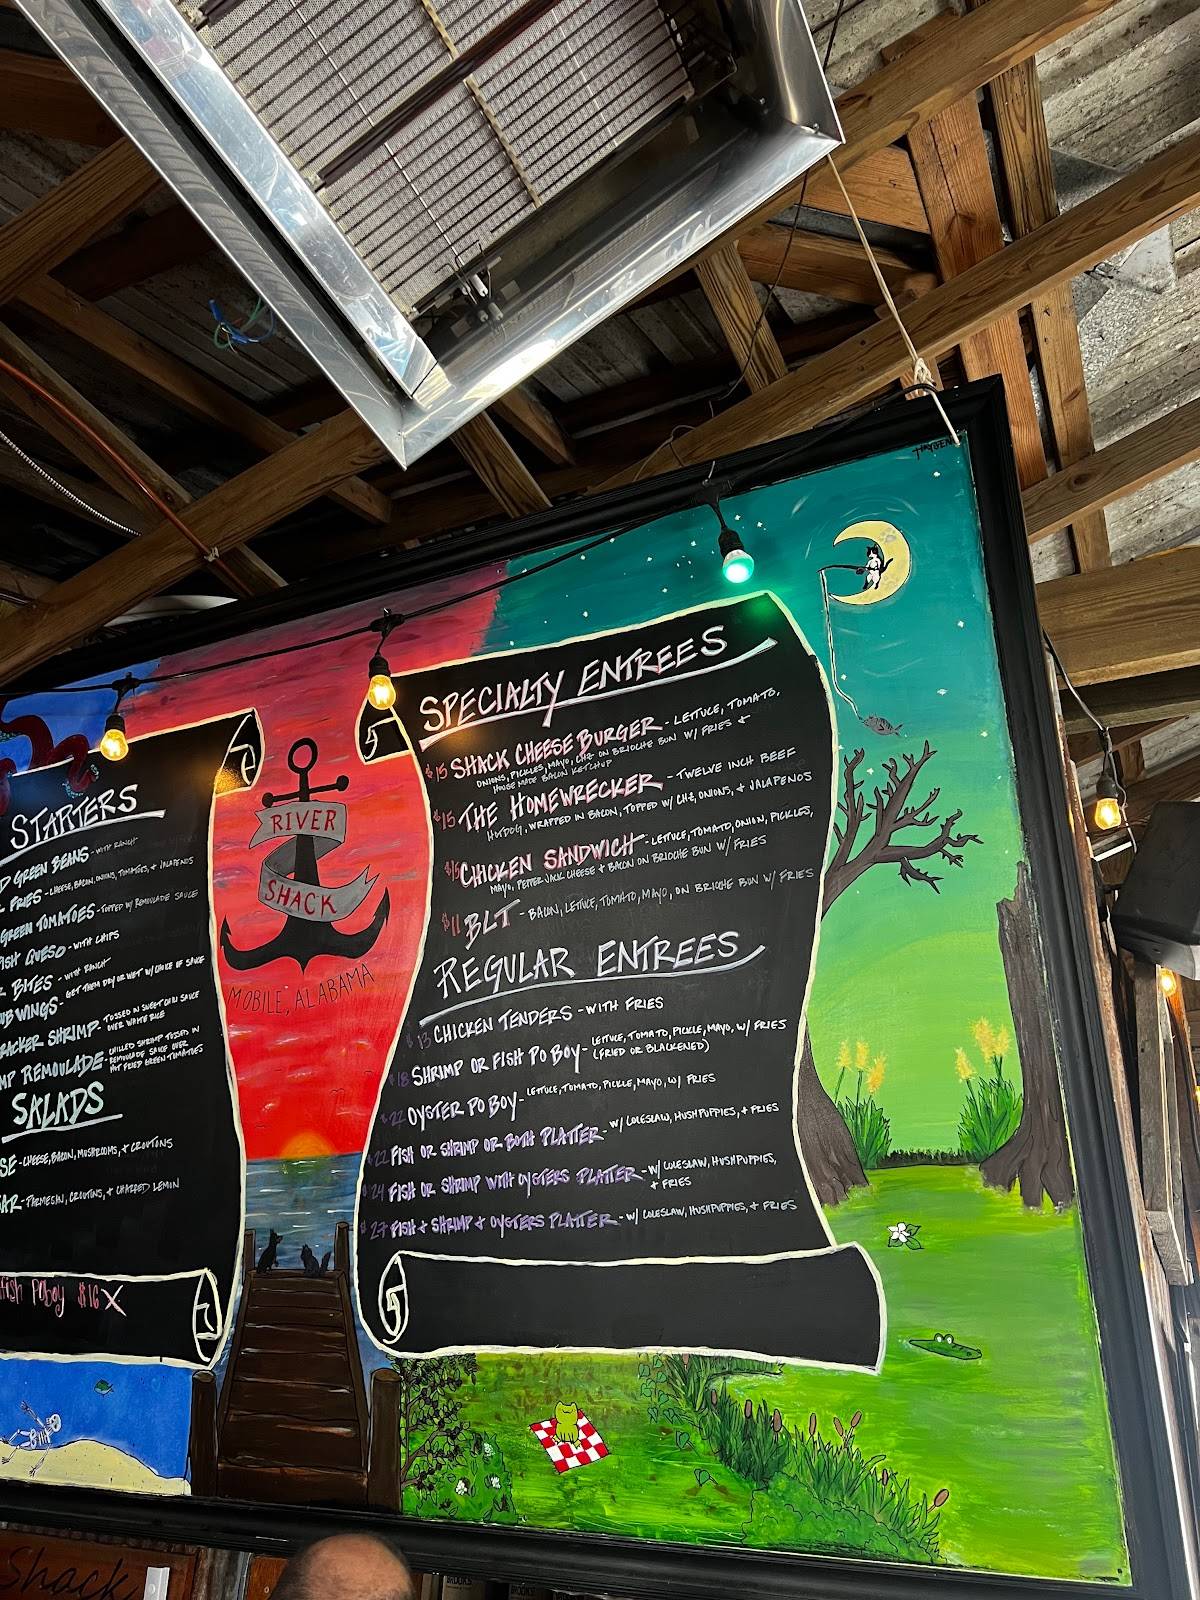 HAYGEN
STARTERS
D GREEN BEANS - WITH RANCH
FRIES - CHEESE, BACON, ONIONS, TOMATOES, + JALAPENOS
GREEN TOMATOES - TOPPED W/ REMOULADE SAUCE
FISH QUESO - WITH CHIPS
R BITES - WITH RANCH
UB WINGS - GET THEM DRY OR WET W/ CHOICE OF SAUCE
RACKER SHRIMP - TOSSED IN SWEET CHILI SAUCE
OVER WHITE RICE
MP REMOULADE - CHILLED SHRIMP TOSSED IN
REMOULADE SAUCE OVER
HOT FRIED GREEN TOMATOES
SALADS
SE - CHEESE, BACON, MUSHROOMS, + CROUTONS
AR - PARMESAN, CROUTONS, + CHARRED LEMON
fish Poboy $16 X
RIVER
SHACK
MOBILE, ALABAMA
SPECIALTY ENTREES
$15 SHACK CHEESE BURGER - LETTUCE, TOMATO,
ONIONS, PICKLES, MAYO, CHZ ON BRIOCHE BUN W/ FRIES +
HOUSE MADE BACON KETCHUP
$15 THE HOMEWRECKER - TWELVE INCH BEEF
HOTDOG, WRAPPED IN BACON, TOPPED W/ CHZ, ONIONS, + JALAPENOS
$15 CHICKEN SANDWICH - LETTUCE, TOMATO, ONION, PICKLES,
MAYO, PEPPERJACK CHEESE + BACON ON BRIOCHE BUN W/ FRIES
$11 BLT - BACON, LETTUCE, TOMATO, MAYO, ON BRIOCHE BUN W/ FRIES
REGULAR ENTREES
$13 CHICKEN TENDERS - WITH FRIES
$18 SHRIMP OR FISH PO BOY - LETTUCE, TOMATO, PICKLE, MAYO, W/ FRIES
(FRIED OR BLACKENED)
$22 OYSTER PO BOY - LETTUCE, TOMATO, PICKLE, MAYO, W/ FRIES
$22 FISH OR SHRIMP OR BOTH PLATTER - W/ COLESLAW, HUSHPUPPIES, + FRIES
$24 FISH OR SHRIMP WITH OYSTERS PLATTER - W/ COLESLAW, HUSHPUPPIES,
+ FRIES
$27 FISH + SHRIMP + OYSTERS PLATTER - W/ COLESLAW, HUSHPUPPIES, + FRIES
Shack